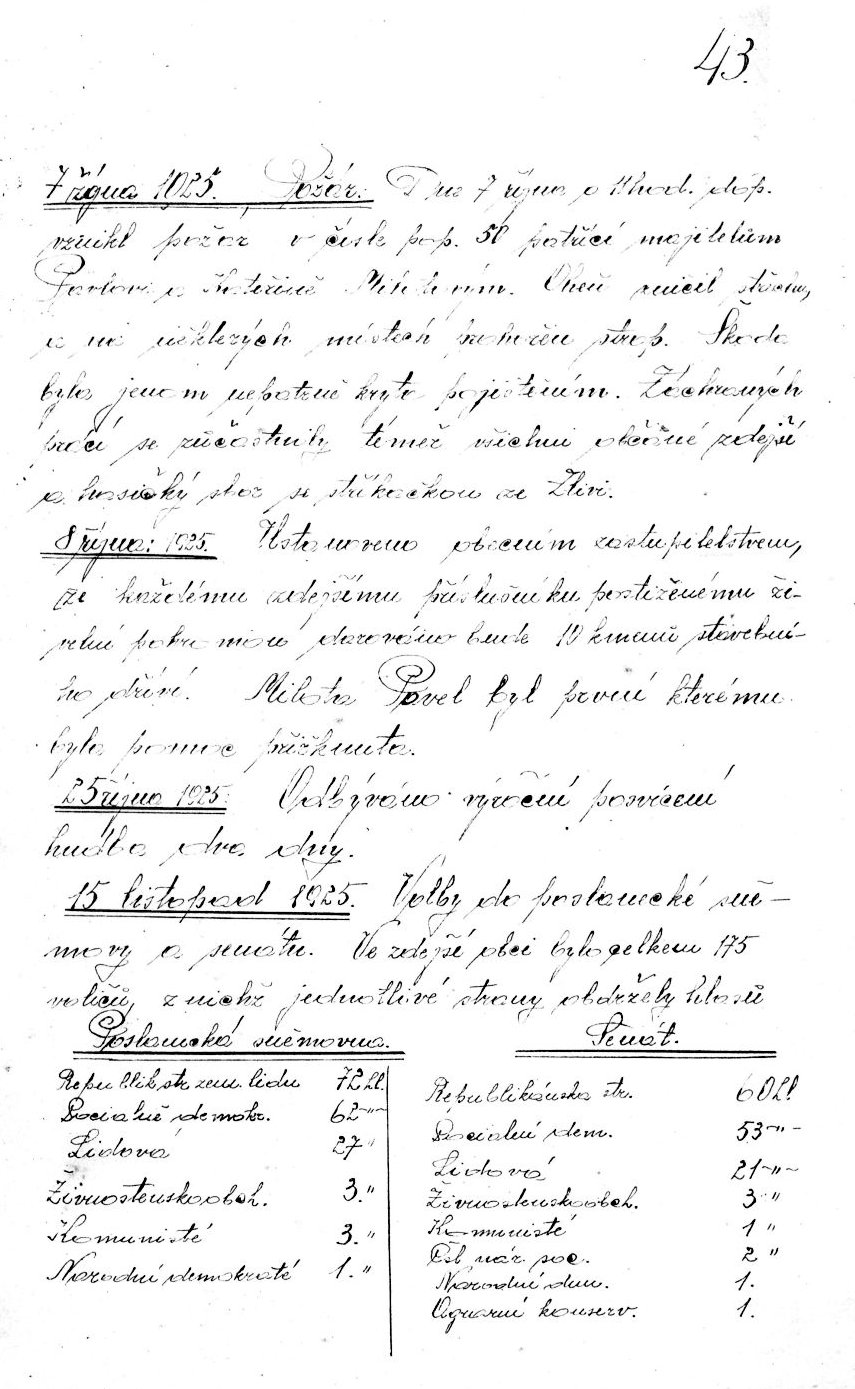 43.
7 října 1925. Požár. Dne 7 října o 11 hod. dop.
vznikl požár v čísle pop. 50 patřící majitelům
Pavlovi a Kateřině Milotovým. Oheň zničil střechu,
a na některých místech prohořen strop. Škoda
byla jenom nepatrně kryta pojištěním. Záchraných
prací se zůčastnily téměř všichni občané zdejší
a hasičký sbor se stříkačkou ze Zlivi.
8 října: 1925. Ustanoveno obecním zastupitelstvem,
že každému zdejšímu příslušníku postiženému ži-
velní pohromou darováno bude 10 kmenů stavební-
ho dříví. Milota Pavel byl první kterému
byla pomoc přiřknuta.
25 října 1925. Odbýváno výroční posvícení
hudba dva dny.
15 listopad 1925. Volby do poslanecké sně-
movny a senátu. Ve zdejší obci bylo celkem 175
voličů, z nichž jednotlivé strany obdržely hlasů
Poslanecká sněmovna. Senát.
Republik str. zem. lidu 72 hl.
Socialně demokr. 62 -"-
Lidová 27 "
Živnostenskoobch. 3. "
Komunisté 3. "
Národní demokraté 1. "
Republikánska str. 60 hl
Socialní dem. 53 -"-
Lidová 21 -"-
Živnostenskoobch. 3 "
Komunisté 1 "
Čsl. nár. soc. 2 "
Národní dem. 1.
Agrarní konserv. 1.